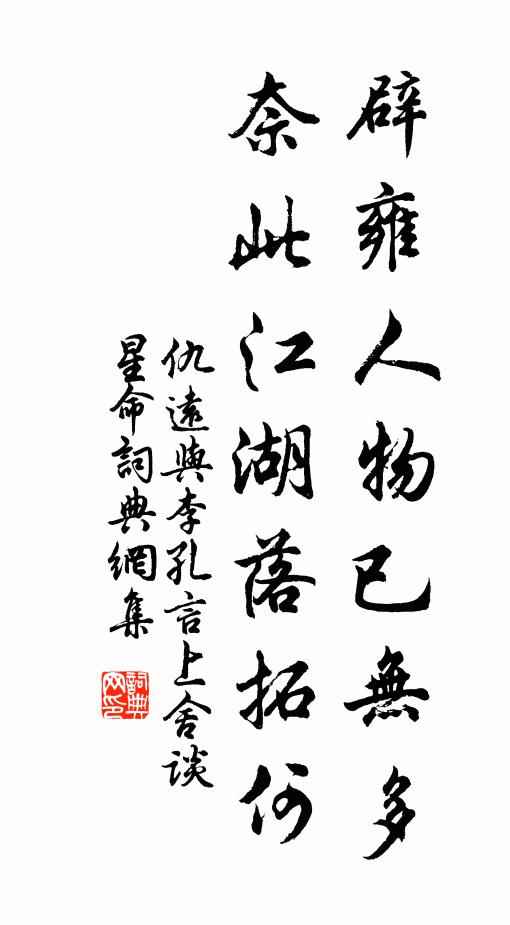 辟雍人物已無多
奈此江湖落拓何
仇遠與李孔言上舍谈
星命詞典網集
詞典网印